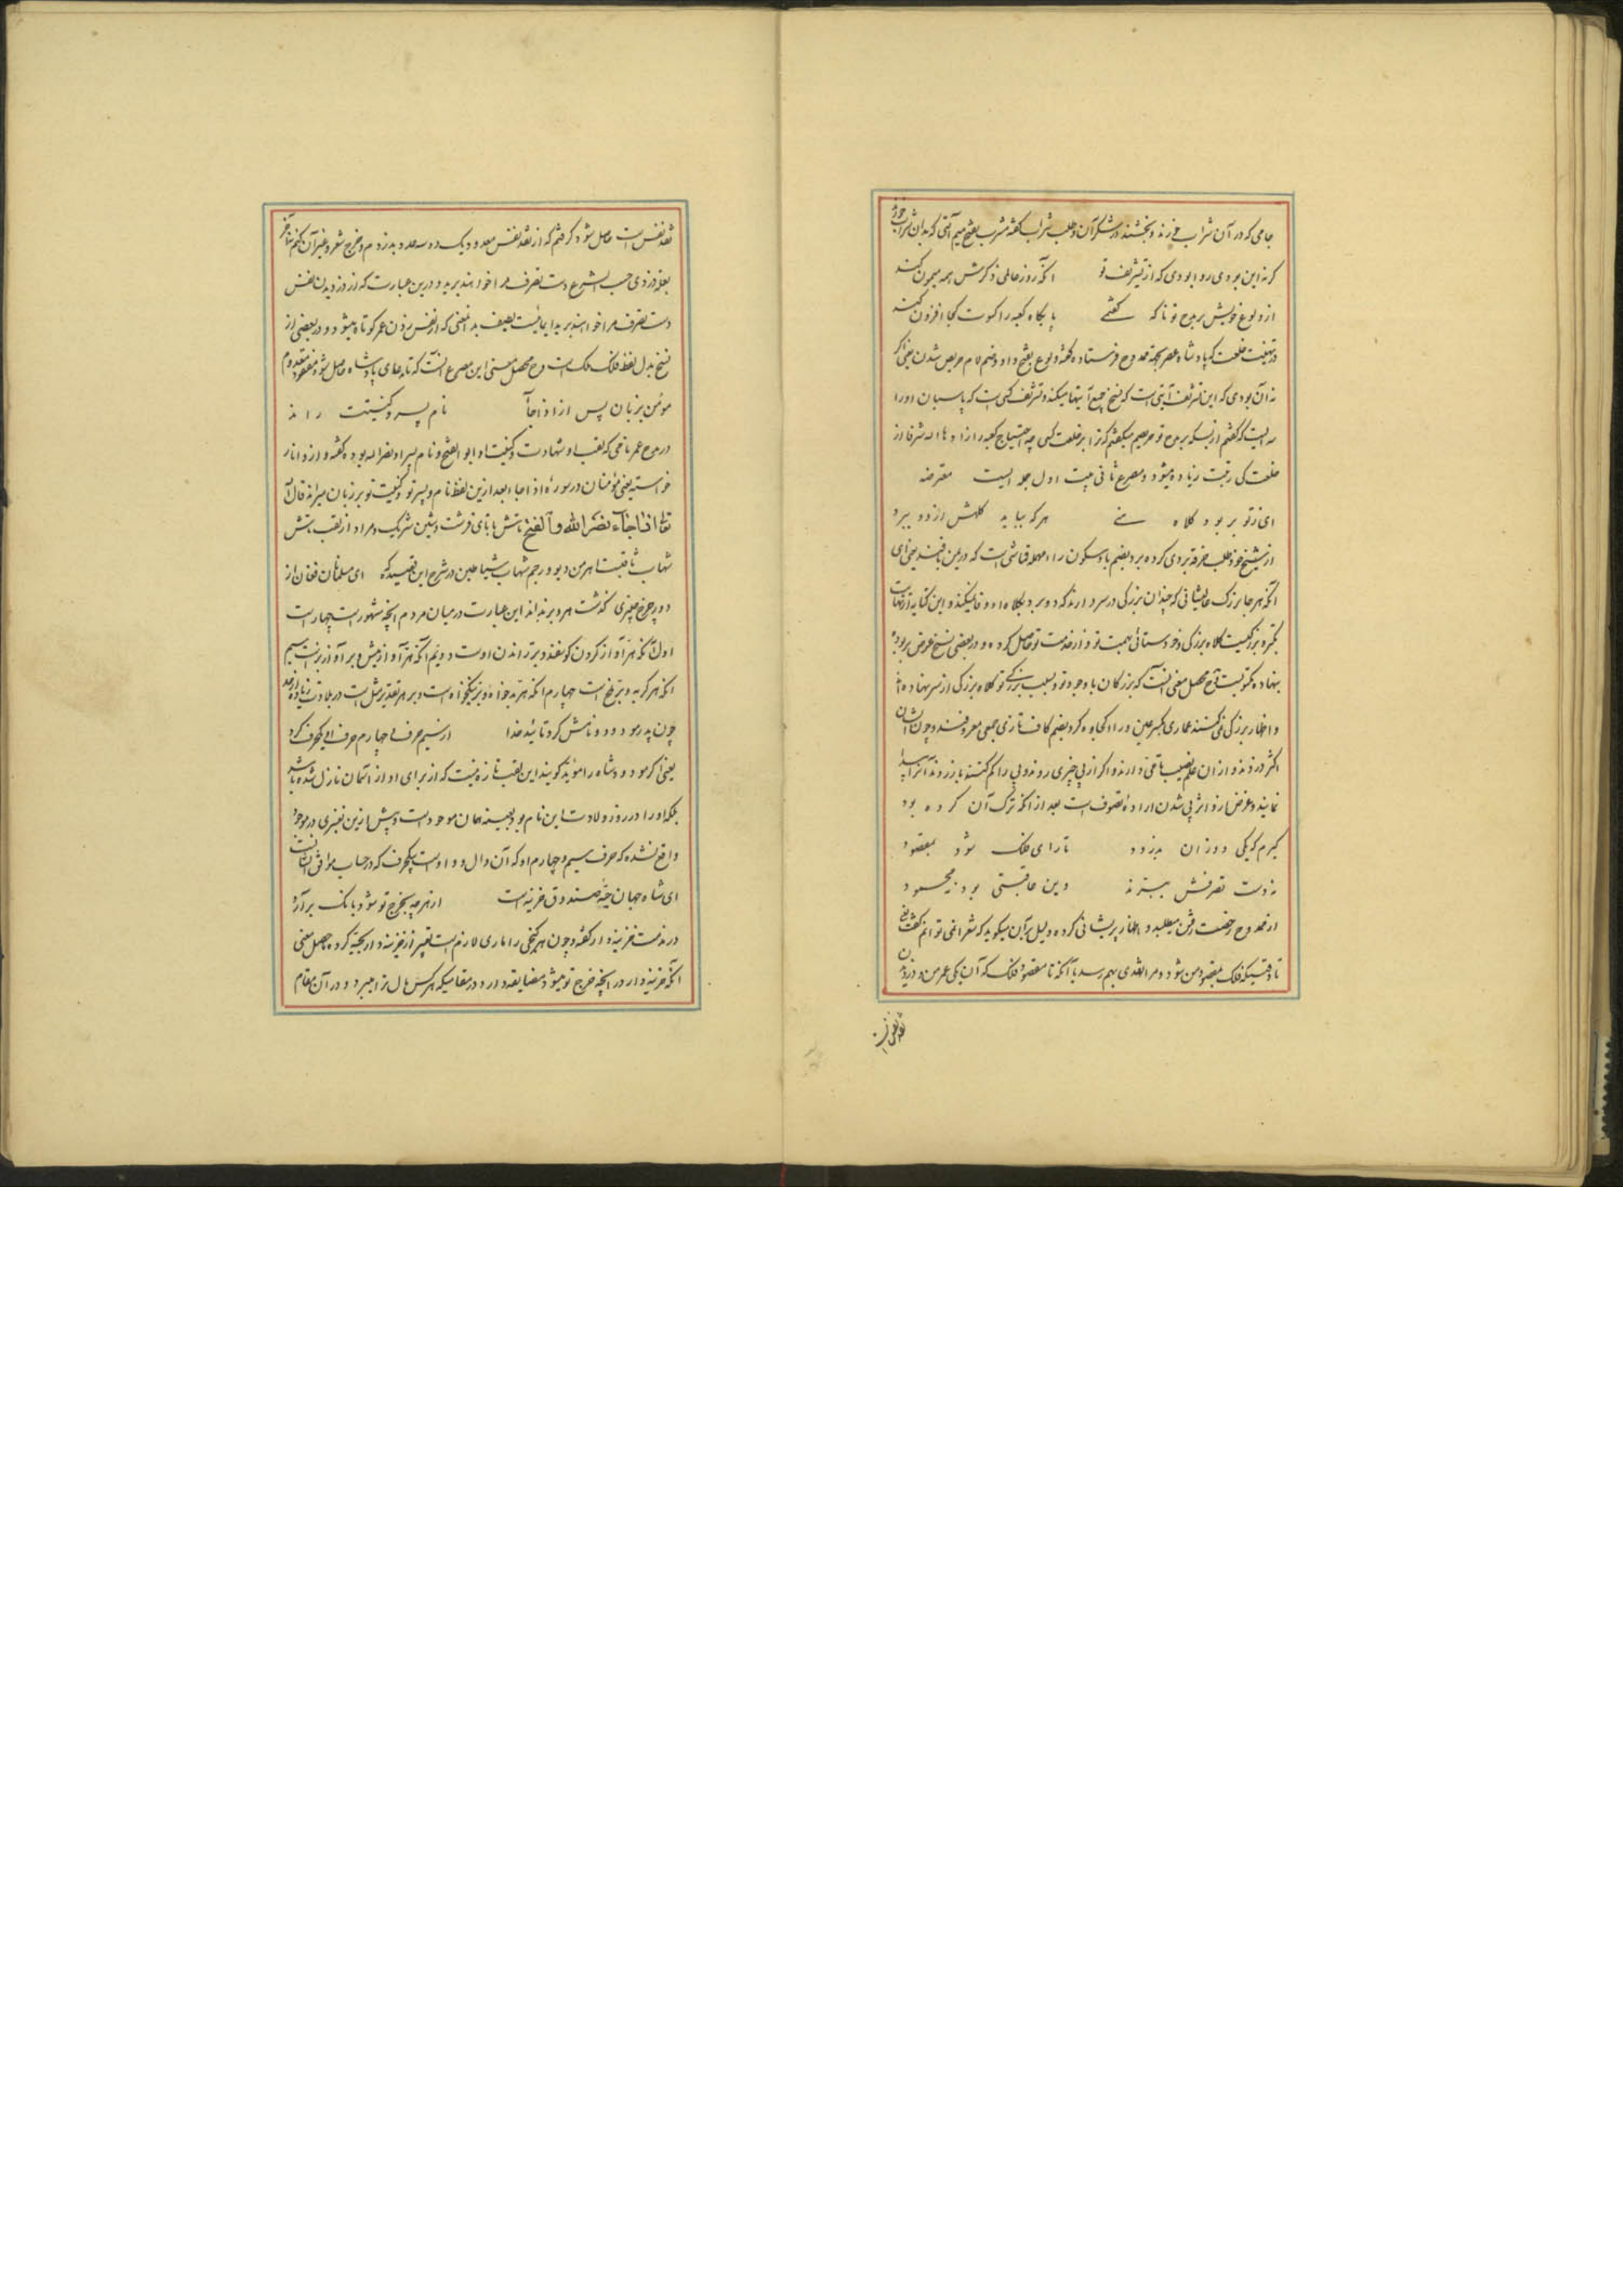 جامی که در آن شراب خورند و بخشند در شکر آن و طلب شراب گفته مشرب بفتح میم آبی که بدان شراب خورند
گر نه این بودی روا بودی که از تشریف تو آنکه روز عالمی ذکرش همه میمون کند
از ولوع خویش بر مدح تو ناگه گفتمی پایگاه کعبه را کسوت کجا افزون کند
در تهنیت خلعت که پادشاه عصر بجهة ممدوح فرستاده گفته ولوع بفتح واو و ضم لام حریص شدن یعنی اگر
نه آن بودی که این تشریف آیتی است که نسخ جمیع آیتها میکند و تشریف کسی است که پاسبان او را
میگفتم از بسکه بر مدح تو حریصم میگفتم که ترا بر خلعت کسی چه احتیاج کعبه را زادها الله شرفا از
خلعت کی رتبت زیاده میشود و مصرع ثانی بیت اول جمله ایست معترضه
ای ز تو بر بود کلاه هر که بیابد کلهش از دو برد
از شیخ خود طلب خرقه بردی کرده برد بضم با و سکون راء مهمله قماشی است که در یمن بافند یعنی ای
آنکه هر جا بزرگ عالیشانی که چندان بزرگی در سر دارد که دو برد بکلاه او وفا نمیکند و این کنایه از نهایت
تکبر و بزرگیست کلاه بزرگی و خودستائی بهمت تو و از خدمت تو حاصل کرده و در بعضی نسخ عوض بربود
بنهاده مکتوبست و محصل معنی آنست که بزرگان با وجود تو و بسبب بزرگی تو کلاه بزرگی از سر نهاده اند
و اظهار بزرگی نمی کنند عماری بکسر عین و را و کجاوه کرد بضم کاف تازی جمعی معروفند و چون ایشان
اکثر دزدند و از آن علم نصیب تامی دارند و اگر از پی چیزی روند و پی را گم کنند باز روند تا آنرا پیدا
نمایند و غرض از دو اثر پی شدن اراده تصوف است بعد از آنکه ترک آن کرده بود
گیرم که یکی دو زان بدزدد تا رای فلک شود بمقصود
نه دست تصرفش ببرند وین عاقبتی بود نه محمود
از ممدوح رخصت رفتن میطلبد و اظهار پریشانی کرده و دلیل بر آن میگوید که شعر نمی توانم گفت یعنی
تا وقتیکه فلک بمقصود من شود و مرا نقدی بهم رسد یا آنکه تا مقصود فلک که آن یکی عمر من و دزدیدن
نقد نفس است
نقد نفس است حاصل شود گرفتم که از نقد نفس معدود یک دو سه عدد بدزدم و خرج شعر و غیر آن کنم تا آخر
بعلت دزدی حسب الشرع دست تصرف مرا خواهند برید و درین عبارت که از دزدیدن نفس
دست تصرف مرا خواهند برید ایهامیست لطیف بدان معنی که از نفس زدن عمر کوتاه میشود و در بعضی از
نسخ بدل لفظ فلک ملک است و محصل معنی این مصرع آنست که تا مدعای پادشاه حاصل شود مقصود معدوم
مومن بزبان پس از اذا جآ نام پسر و کنیتت راند
در مدح عمر نامی که لقب او شهاب و کنیت او ابوالفتح و نام پسر او نصرالله بوده گفته و از واناز
خواسته یعنی مؤمنان در سوره اذا جاء بعد ازین لفظ نام پسر تو و کنیت تو بر زبان میراند قال الله
تعا اذا جاء نصر الله والفتح بتش با تای فرشت و شین شریک و مراد از لقب بتش
شهاب ثاقبست اهرمن دیو و رجم شهاب شیاطین در شرح این قصیده که ای مسلمانان فغان از
دور چرخ چنبری گذشت هر و بر بداند این عبارت در میان مردم آنچه مشهور است چهار است
اول آنکه هر آواز کردن گوسفند و بر راندن اوست دویم آنکه هر آواز میش و بر آواز بز است سیم
آنکه هر گربه و بر موش است چهارم آنکه هر بدخواه و بر نیکخواه است و بر هر تقدیر مثل است در بلادت زیاده از حد
چون پدر مودود و نامش کرد تائید خدا از سیم حرف و چهارم حرف او یکحرف کرد
یعنی اگر مودود شاه را مؤید گویند این لقب تازه نیست که از برای او از آسمان نازل شده باشد
بلکه او را در روز ولادت این نام بود بعینه همان موجود است و پیش ازین تغییری در موجود
واقع نشده که حرف سیم و چهارم او که آن دال و واو است بیکحرف که در حساب موافق آنست
ای شاه جهان حبه صندوق خزینه است از هر چه بخرج تو شود بانگ برآرد
در مذمت خزینه دار گفته و چون هر گنجی را ماری لازم است تعبیر از خزینه دار بحیه کرده حاصل معنی
آنکه خزینه دار در آنچه خرج تو میشود مضایقه دارد در مقامیکه هر کس مال ترا میبرد و در آن مقام